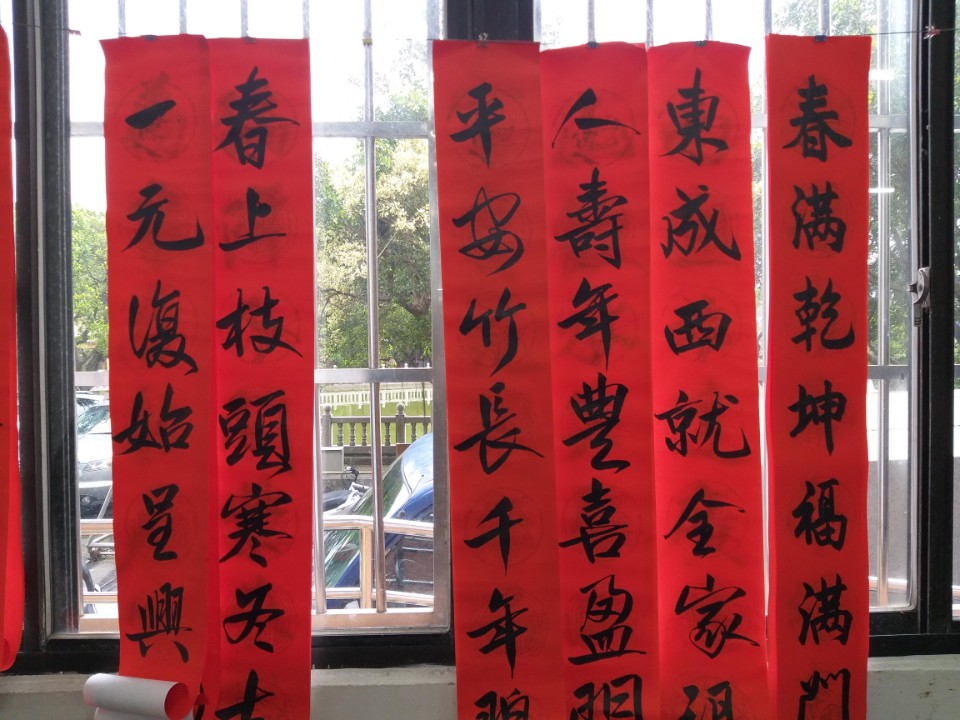 春满乾坤福满門
東成西就全家
人壽年豐喜盈門
平安竹長千年碧
春上枝頭寒冬去
一元復始呈興